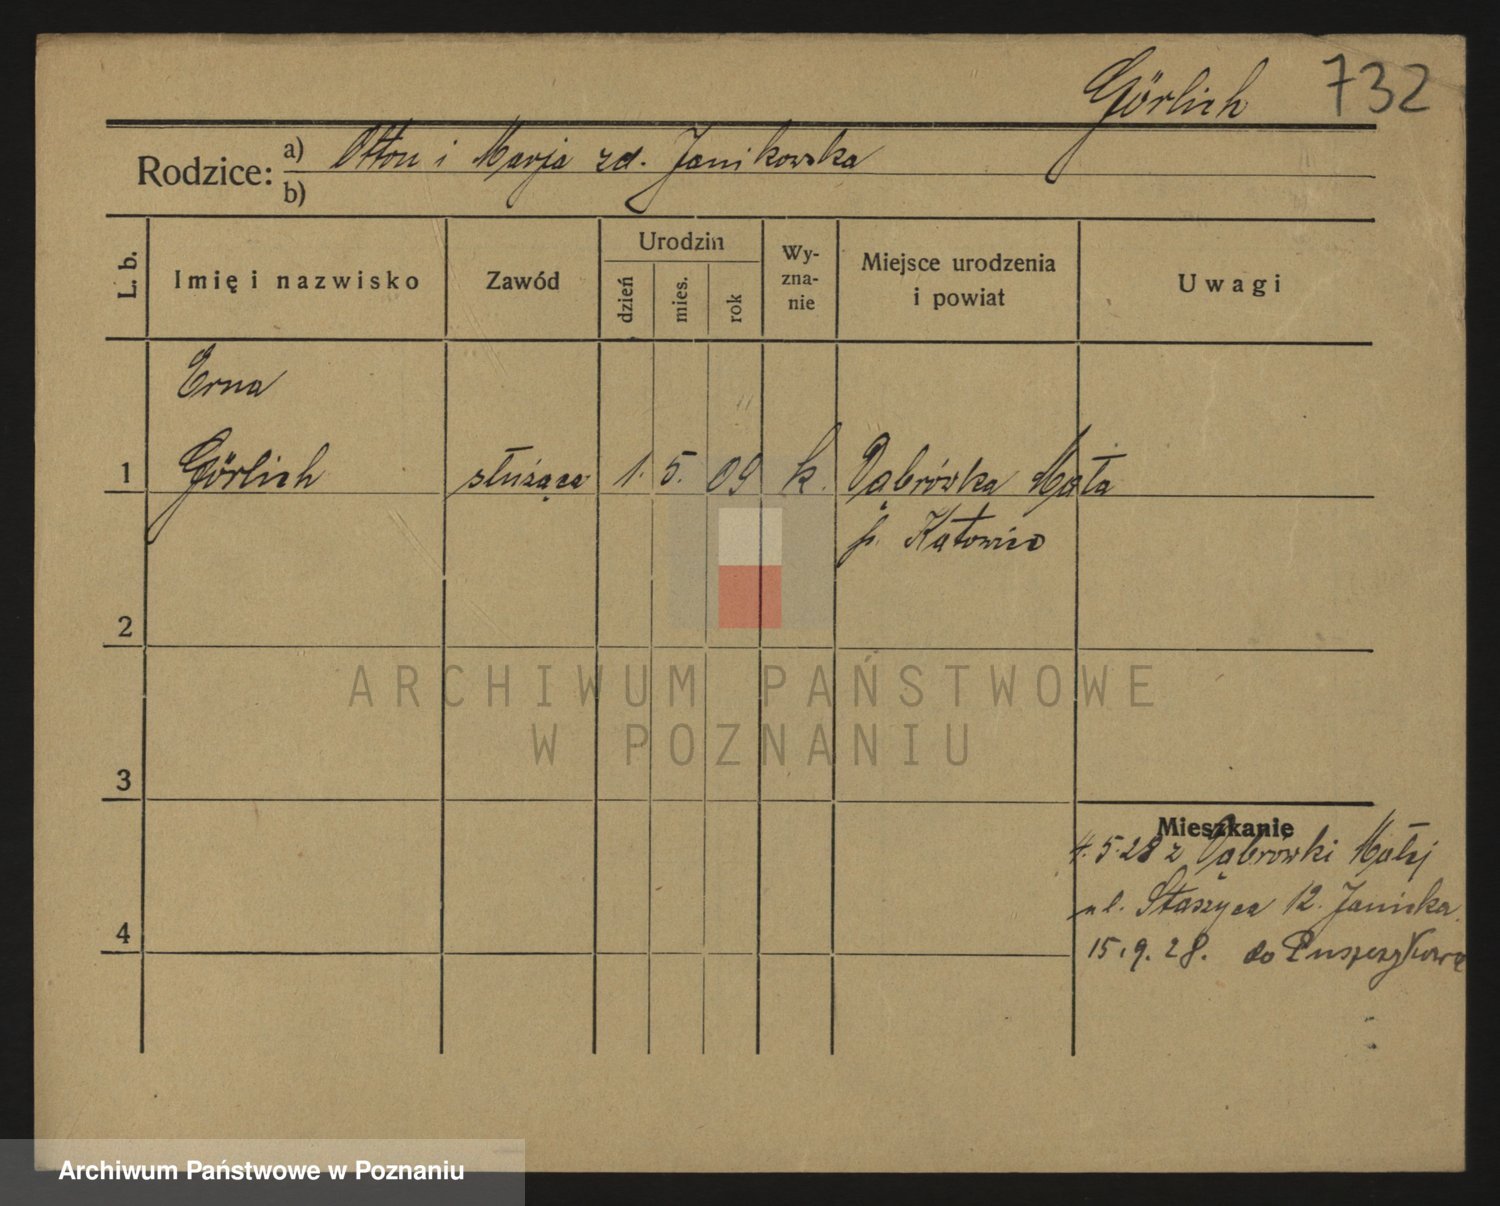 Görlich 732
Rodzice: a) Otton i Marja zd. Janikowska
b)
L. b.
Imię i nazwisko
Zawód
Urodzin
dzień
mies.
rok
Wy-
zna-
nie
Miejsce urodzenia
i powiat
Uwagi
Erna
1 Görlich służąca 1. 5. 09 k. Dąbrówka Mała
p. Katowice
2
3
4
Mieszkanie
4.5.28 z Dąbrówki Małej
ul. Staszyca 12. Janicka
15.9.28. do Puszczykowa
ARCHIWUM PAŃSTWOWE
W POZNANIU
Archiwum Państwowe w Poznaniu